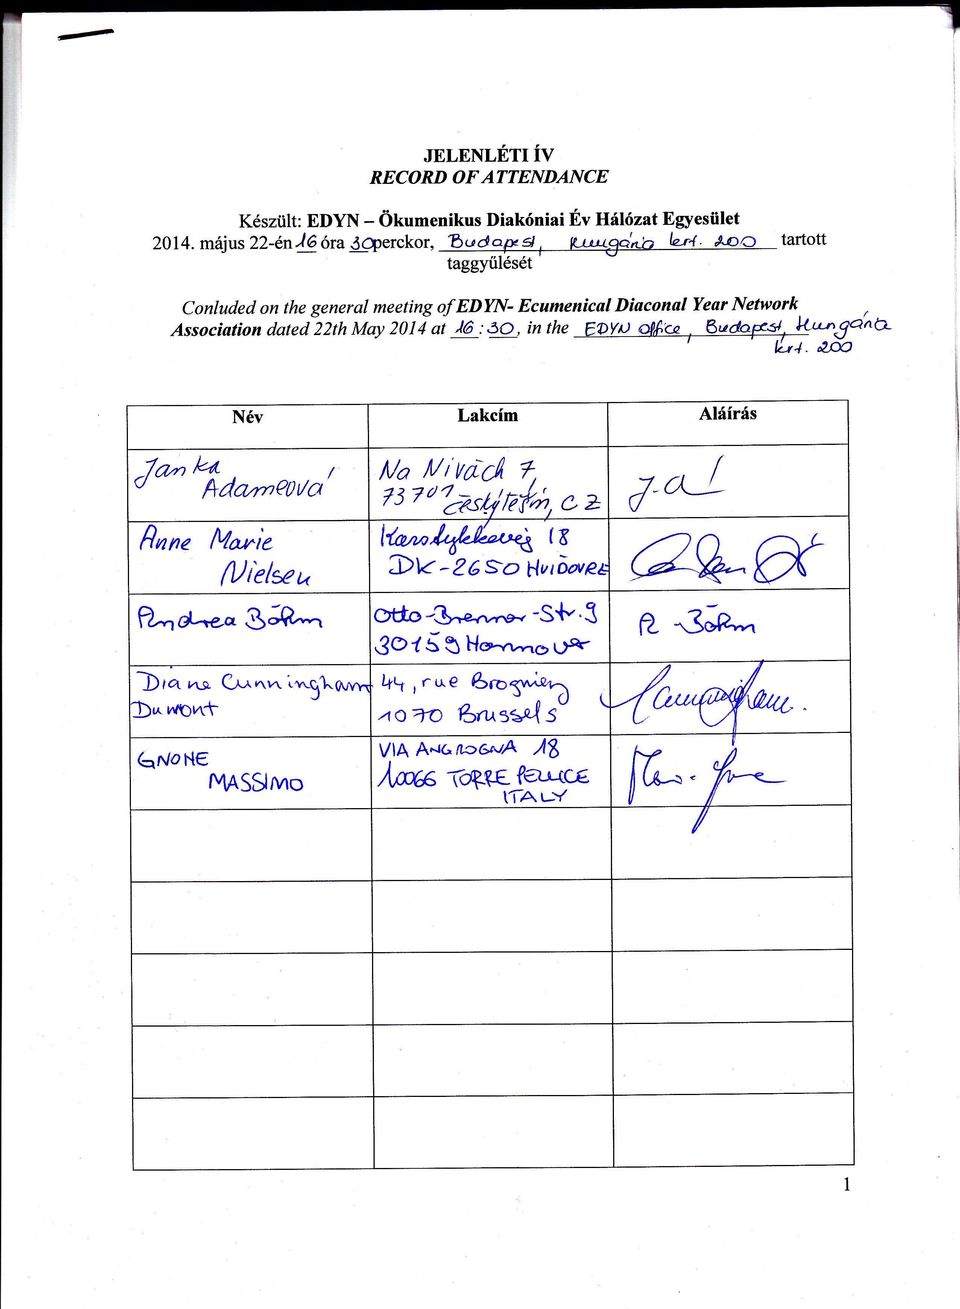 JELENLÉTI ÍV
RECORD OF ATTENDANCE
Készült: EDYN – Ökumenikus Diakóniai Év Hálózat Egyesület
2014. május 22-én 16 óra 30perckor, Budapest, Hungária krt. 200 tartott
taggyűlését
Conluded on the general meeting of EDYN- Ecumenical Diaconal Year Network
Association dated 22th May 2014 at 16:30, in the EDYN office, Budapest, Hungária
krt. 200
Név Lakcím Aláírás
Janka Na Nivách 7,
Adameová 73701 Český Těšín, CZ
Anne Marie 18
Nielsen DK-2650 HVIDOVRE
Andrea Böhm Otto-Brenner-Str. 9 A. Böhm
30159 Hannover
Diane Cunningham 44, rue Brogniez Cunningham
Dumont 1070 Brussels
GNONE VIA ANGROGNA 18
MASSIMO 10066 TORRE PELLICE
ITALY
1